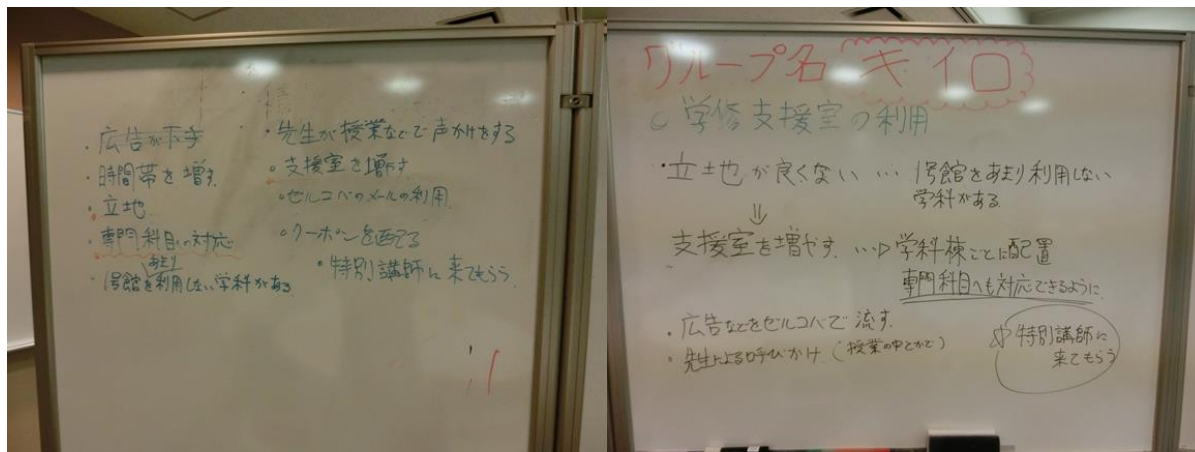 ・広告が下手
・時間帯を増す
・立地
・専門科目への対応
あまり
・1号館を利用しない学科がある
・先生が授業などで声かけをする
・支援室を増やす
・ゼルコバのメールの利用
・クーポンを配る
・特別講師に来てもらう
グループ名 キイロ
○学修支援室の利用
・立地が良くない … 1号館をあまり利用しない
学科がある
⇓
支援室を増やす …⇨ 学科棟ごとに配置
専門科目へも対応できるように
・広告などをゼルコバで流す
・先生による呼びかけ (授業の中とかで)
特別講師に
来てもらう